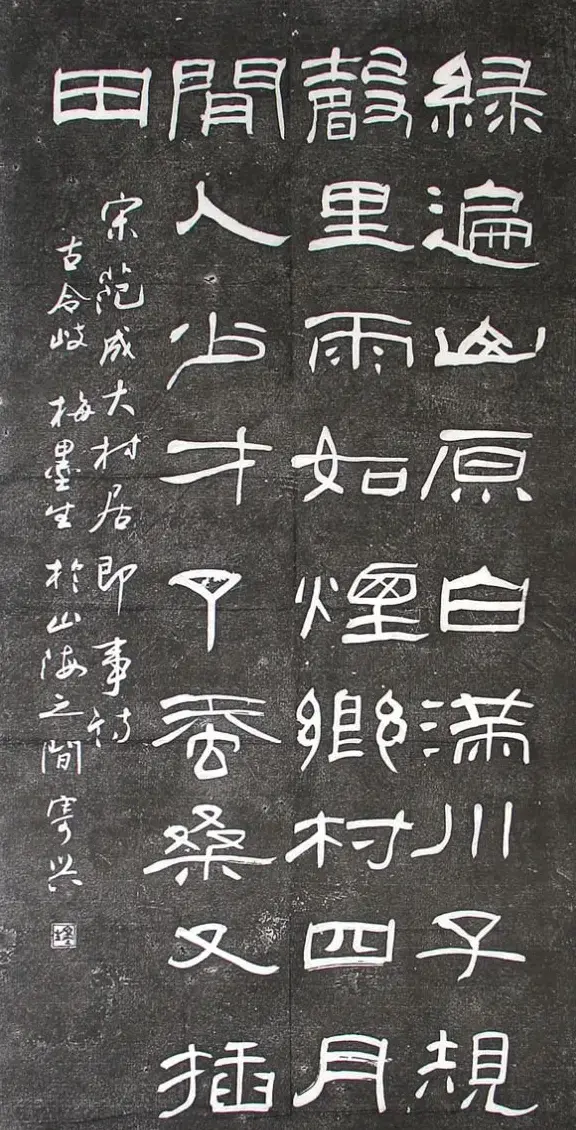 綠遍山原白滿川子規
聲里雨如煙鄉村四月
間人少才了蚕桑又插
田
宋范成大村居即事诗
古令岐 梅墨生 於山海之間 寄兴